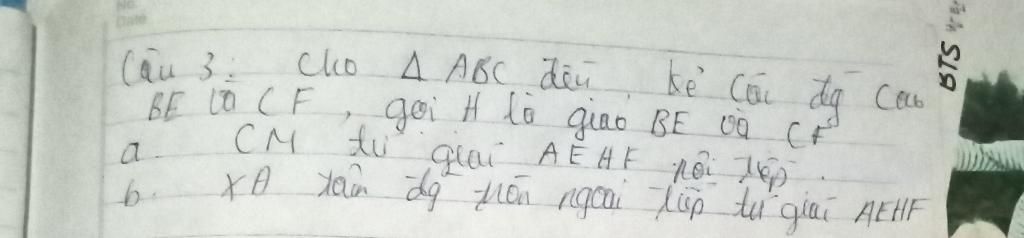 No.
Date
Câu 3: Cho Δ ABC đều, kẻ các đg cao
BE và CF, gọi H là giao BE và CF
a. CM tứ giác AEHF nội tiếp.
b. XĐ tâm đg tròn ngoại tiếp tứ giác AEHF
BTS